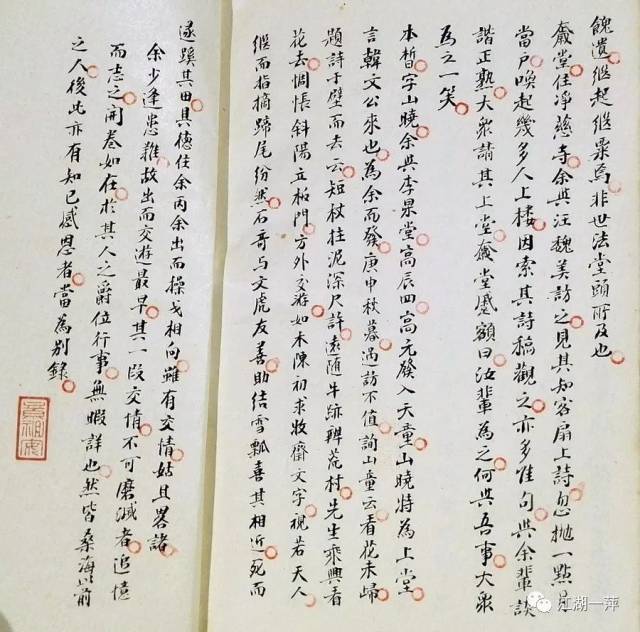 餽遺繼起繼粟焉非世法堂頭所及也
豁堂住淨慈寺余與汪魏美訪之見其知客扇上詩忽拋一點是
當戶喚起幾多人上樓因索其詩稿觀之亦多佳句與余輩談
諧正熟大衆請其上堂豁堂蹙額曰汝輩為之何與吾事大衆
為之一笑
本晳字山曉余與李杲堂高辰四高元發入天童山曉特為上堂
言韓文公來也為余而發庚申秋暮過訪不值詢山童云看花未歸
題詩于壁而去云短杖拄泥深尺許遠隨牛跡辨荒村先生乘興看
花去惆悵斜陽立柏門方外交游如木陳初求收齋文字視若天人
繼而指摘蹄尾紛然石奇与文虎友善助結雪瓢喜其相近死而
遂蹊其田具德住余丙舍出而操戈相向雖有交情姑且畧諸
余少逢患難故出而交遊最早其一段交情不可磨滅者追憶
而志之開卷如在於其人之爵位行事無暇詳也然皆桑海以前
之人後此亦有知己感恩者當為別錄
江湖一萍